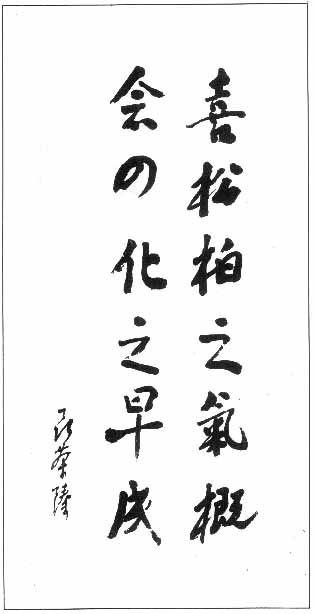 喜松柏之氣概
会の化之早成
榮隆